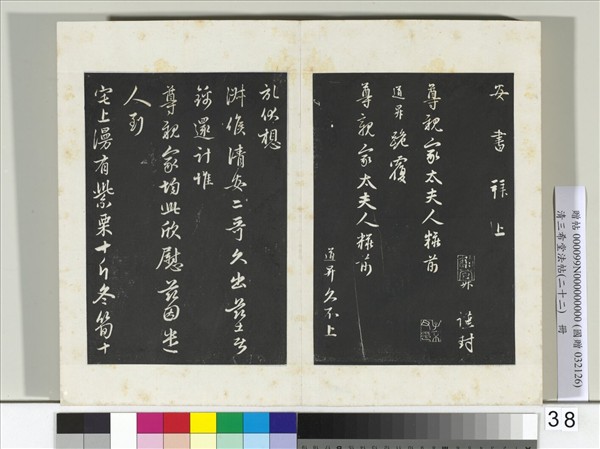 安書拜上
尊親家太夫人粧前
謹封
道昇跪覆
尊親家太夫人粧前
道昇久不上
伏想
候清安二哥久出
還計惟
尊親家均此欣慰茲因遣
人到
宅上謾有紫栗十斤冬筍十
贈帖 000099N000000000 (國贈 032126)
清三希堂法帖(二十二) 冊
38